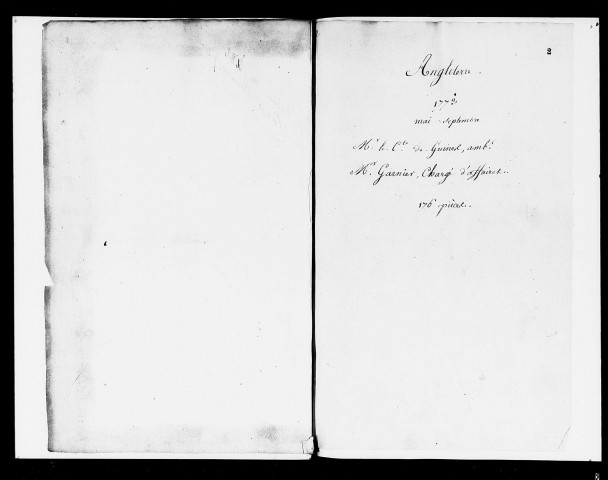 2
Angleterre.
1773.
mai - septembre
Mr. le Cte. de Guines, ambr.
Mr. Garnier, Chargé d'affaires.
176 pièces.